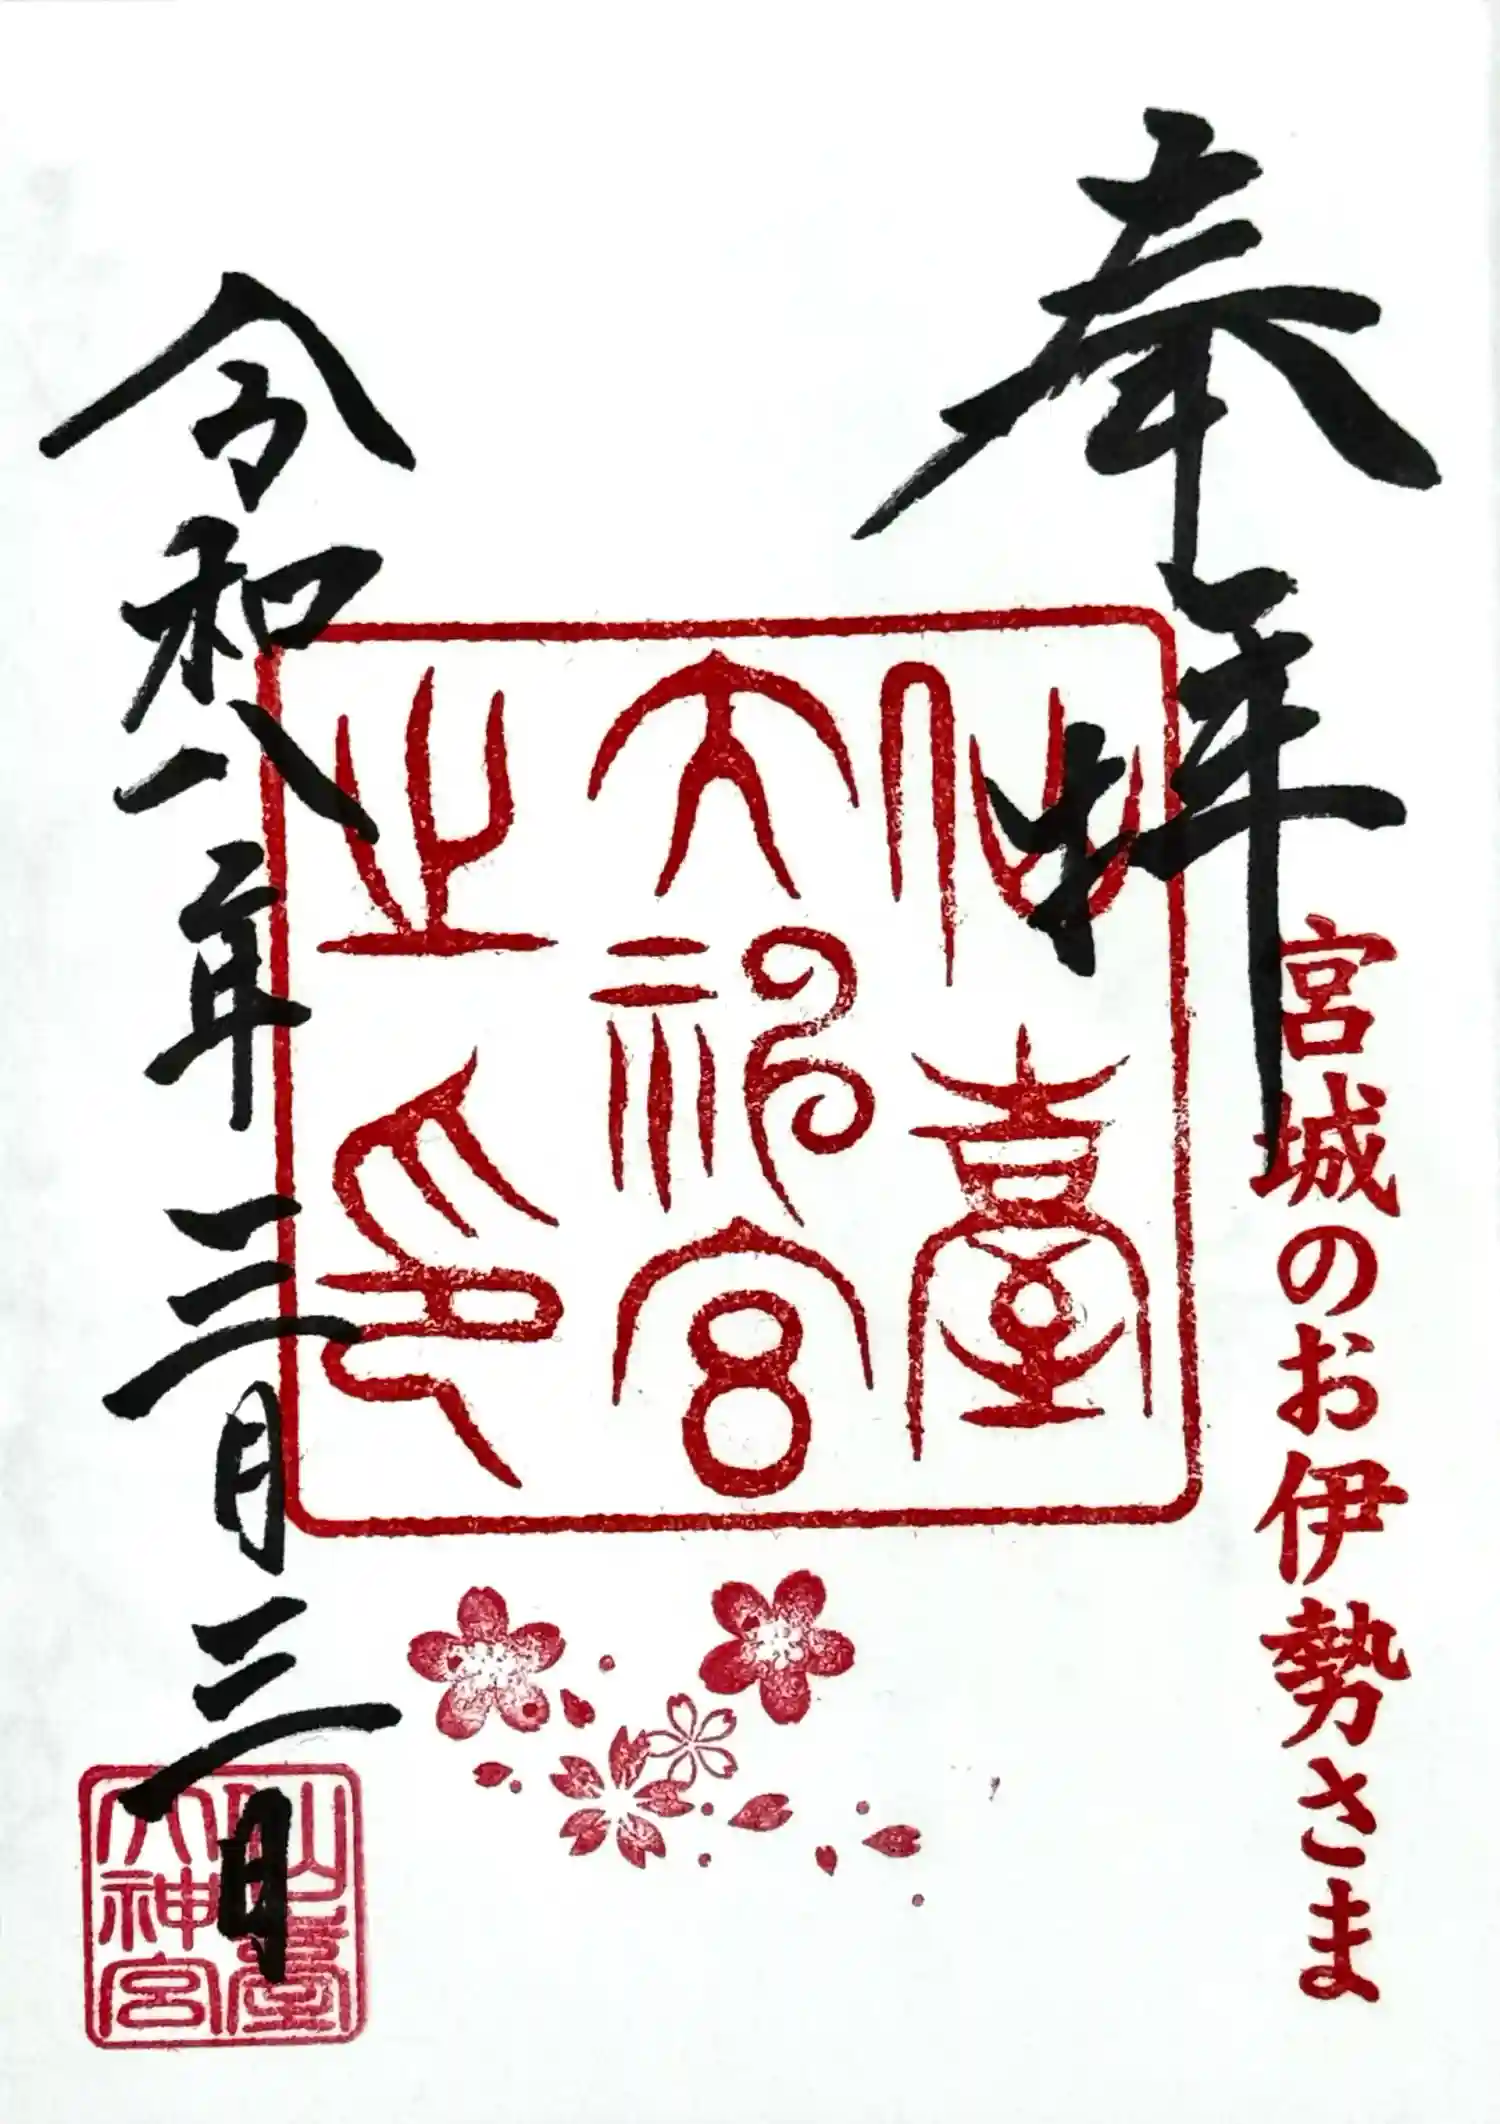 奉拝
宮城のお伊勢さま
仙臺
大神宮
之印
令和八年三月三日
仙臺
大神宮